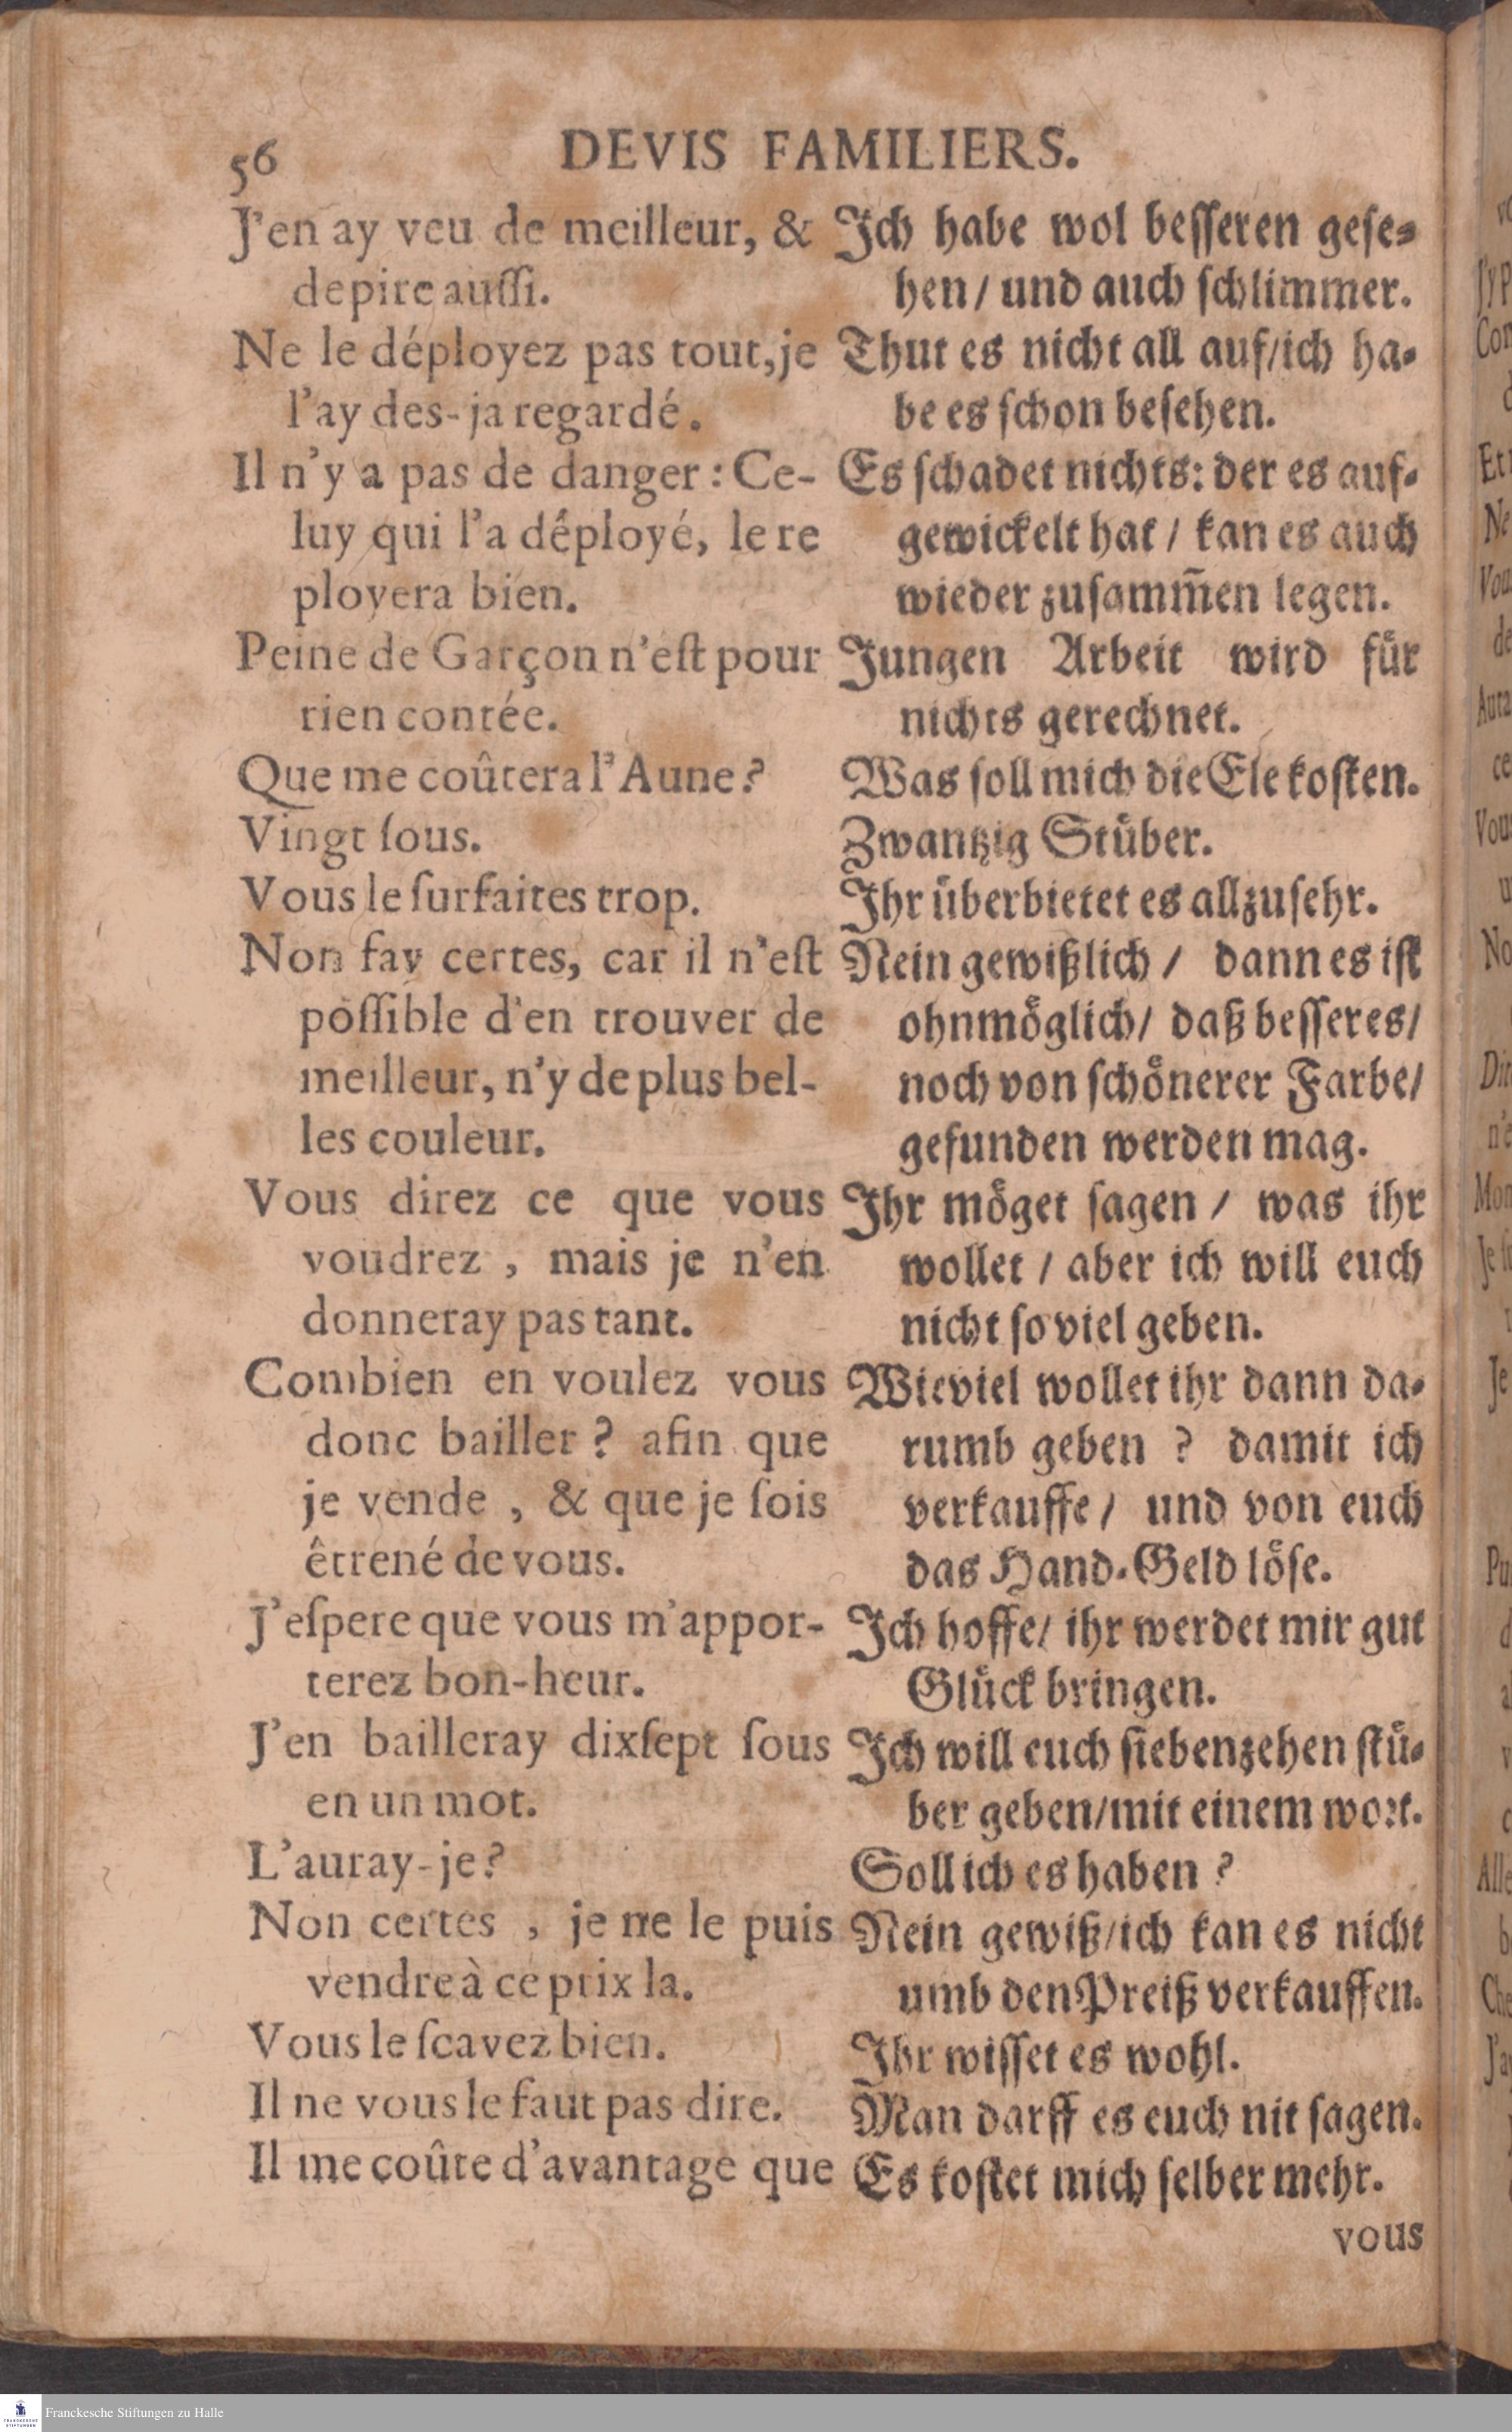 56
DEVIS FAMILIERS.
J'en ay veu de meilleur, &
depire auſſi.
Ne le déployez pas tout, je
l'ay des-ja regardé.
Il n'y a pas de danger : Ce-
luy qui l'a déployé, le re
ployera bien.
Peine de Garçon n'eſt pour
rien contée.
Que me coûtera l'Aune?
Vingt ſous.
Vous le ſurfaites trop.
Non fay certes, car il n'eſt
poſſible d'en trouver de
meilleur, n'y de plus bel-
les couleur.
Vous direz ce que vous
voudrez , mais je n'en
donneray pas tant.
Combien en voulez vous
donc bailler ? afin que
je vende , & que je ſois
êtrené de vous.
J'eſpere que vous m'appor-
terez bon-heur.
J'en bailleray dixſept ſous
en un mot.
L'auray-je?
Non certes , je ne le puis
vendre à ce prix la.
Vous le ſcavez bien.
Il ne vous le faut pas dire.
Il me coûte d'avantage que
Ich habe wol beſſeren geſe-
hen/ und auch ſchlimmer.
Thut es nicht all auf/ich ha-
be es ſchon beſehen.
Es ſchadet nichts: der es auf-
gewickelt hat / kan es auch
wieder zuſam̃en legen.
Jungen Arbeit wird fuͤr
nichts gerechnet.
Was ſoll mich die Ele koſten.
Zwantzig Stuͤber.
Ihr uͤberbietet es allzuſehr.
Nein gewißlich / dann es iſt
ohnmoͤglich/ daß beſſeres/
noch von ſchoͤnerer Farbe/
gefunden werden mag.
Ihr moͤget ſagen / was ihr
wollet / aber ich will euch
nicht ſo viel geben.
Wieviel wollet ihr dann da-
rumb geben ? damit ich
verkauffe / und von euch
das Hand-Geld loͤſe.
Ich hoffe/ ihr werdet mir gut
Gluͤck bringen.
Ich will euch ſiebenzehen ſtuͤ-
ber geben/mit einem wort.
Soll ich es haben ?
Nein gewiß/ich kan es nicht
umb den Preiß verkauffen.
Ihr wiſſet es wohl.
Man darff es euch nit ſagen.
Es koſtet mich ſelber mehr.
vous
Franckesche Stiftungen zu Halle